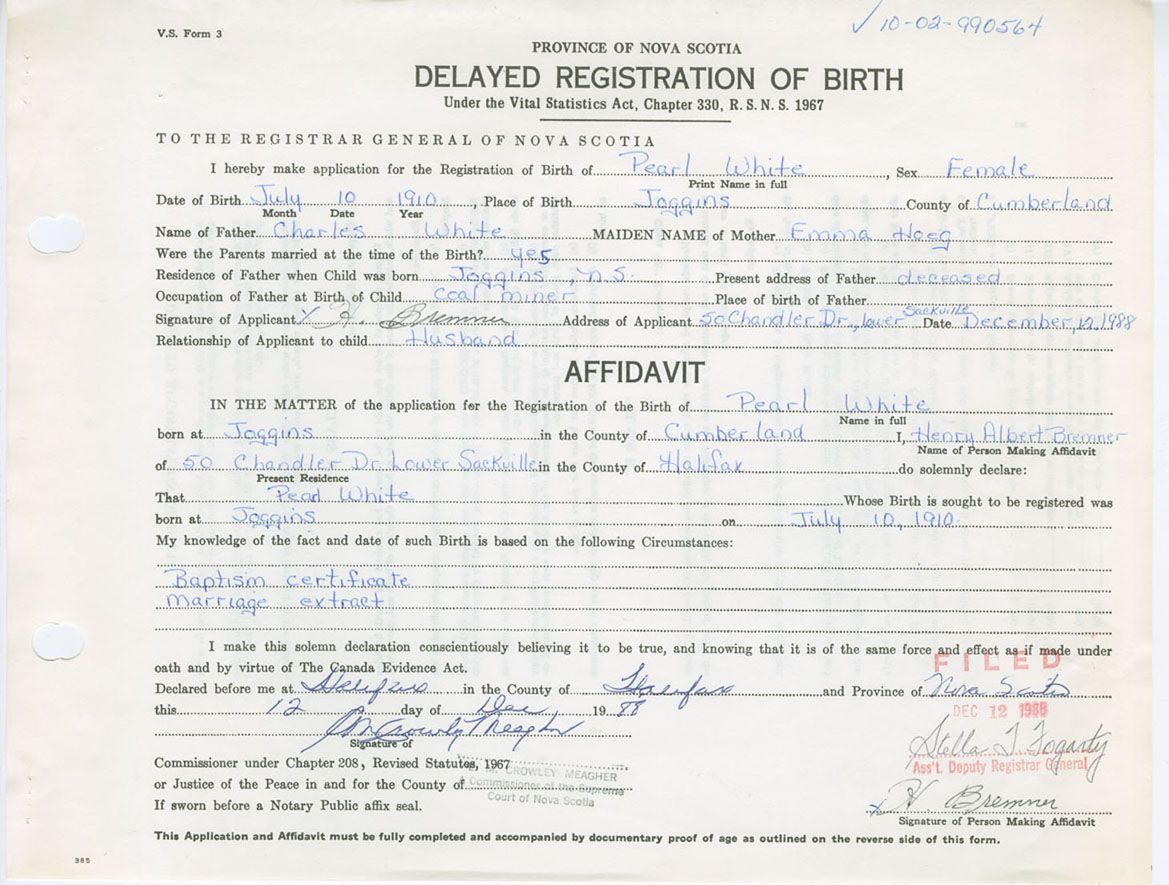 V.S. Form 3
✓ 10-02-990564
PROVINCE OF NOVA SCOTIA
DELAYED REGISTRATION OF BIRTH
Under the Vital Statistics Act, Chapter 330, R. S. N. S. 1967
TO THE REGISTRAR GENERAL OF NOVA SCOTIA
I hereby make application for the Registration of Birth of Pearl White, Sex Female
Print Name in full
Date of Birth July 10 1910, Place of Birth Joggins County of Cumberland
Month Date Year
Name of Father Charles White MAIDEN NAME of Mother Emma Hoeg
Were the Parents married at the time of the Birth? yes
Residence of Father when Child was born Joggins, N.S. Present address of Father deceased
Occupation of Father at Birth of Child coal miner Place of birth of Father
Signature of Applicant X H. Bremner Address of Applicant 50 Chandler Dr., Lower Sackville Date December, 12, 1988
Relationship of Applicant to child Husband
AFFIDAVIT
IN THE MATTER of the application for the Registration of the Birth of Pearl White
Name in full
born at Joggins in the County of Cumberland I, Henry Albert Bremner
Name of Person Making Affidavit
of 50 Chandler Dr. Lower Sackville in the County of Halifax do solemnly declare:
Present Residence
That Pearl White Whose Birth is sought to be registered was
born at Joggins on July 10, 1910.
My knowledge of the fact and date of such Birth is based on the following Circumstances:
Baptism certificate
marriage extract
I make this solemn declaration conscientiously believing it to be true, and knowing that it is of the same force and effect as if made under
oath and by virtue of The Canada Evidence Act.
FILED
Declared before me at Halifax in the County of Halifax and Province of Nova Scotia
this 12 day of Dec, 1988
DEC 12 1988
Crowley Meagher
Signature of
Stella T Fogarty
Ass't. Deputy Registrar General
Commissioner under Chapter 208, Revised Statutes, 1967
M. CROWLEY MEAGHER
or Justice of the Peace in and for the County of
A Commissioner of the Supreme
Court of Nova Scotia
If sworn before a Notary Public affix seal.
X H Bremner
Signature of Person Making Affidavit
This Application and Affidavit must be fully completed and accompanied by documentary proof of age as outlined on the reverse side of this form.
385